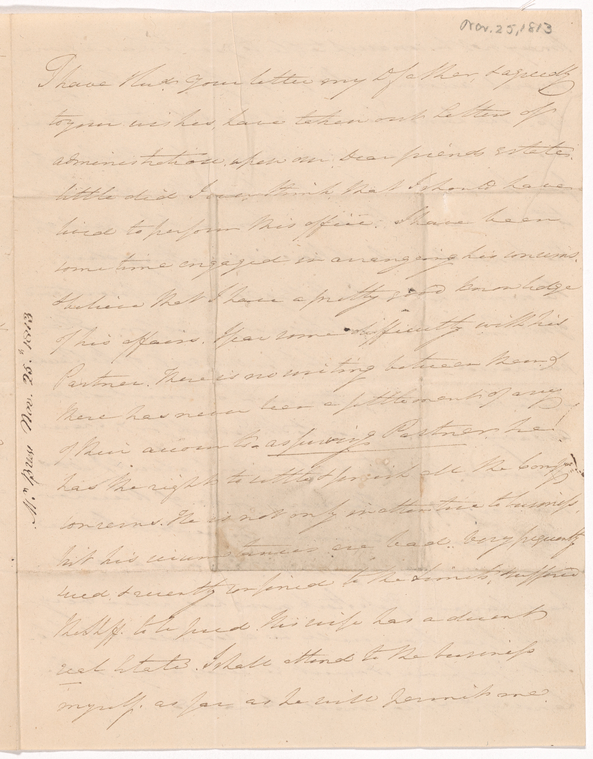 Nov. 25, 1813
I have Recd. your letter my Dr father, & agreeably
to your wishes, have taken out letters of
administration upon our Dear friends estate,
little did I ever think that I should have
lived to perform this office. I have been
some time engaged in arranging his concerns
& believe that I have a pretty good knowledge
of his affairs. I fear some difficulty with his
Partner. There is no writing between them, &
there has never been a settlement of any
of their accounts. as surving Partner, he
has the right to settle & finish all the
concerns. He is not only inattentive to business,
but his circumstances are bad. Very frequently
sued & recently confined to the limits, suffered
the Shff. to be sued. His wife has a decent
real Estate. I shall attend to the business
myself. as far as he will permit me.
Nov. 25. 1813